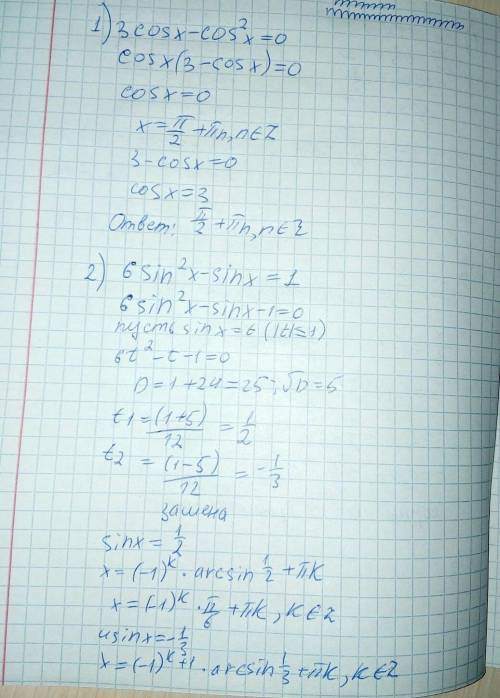 1) 3cosx-cos²x=0
cosx(3-cosx)=0
cosx=0
x=π/2+πn, n∈Z
3-cosx=0
cosx=3
Ответ: π/2+πn, n∈Z
2) 6sin²x-sinx=1
6sin²x-sinx-1=0
пусть sinx=t (|t|≤1)
6t²-t-1=0
D=1+24=25; √D=5
t1=(1+5)/12=1/2
t2=(1-5)/12=-1/3
замена
sinx=1/2
x=(-1)^k·arcsin1/2+πk
x=(-1)^k·π/6+πk, k∈Z
иsinx=-1/3
x=(-1)^k+1·arcsin1/3+πk, k∈Z